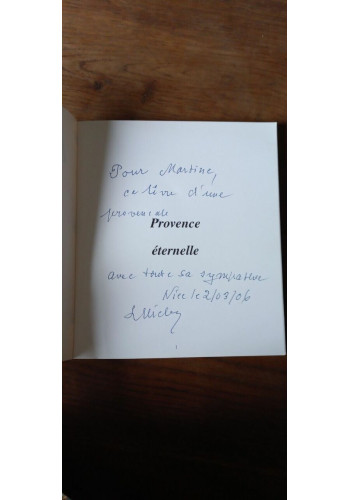 Pour Martine,
ce livre d'une
provençale
Provence
éternelle
avec toute sa sympathie
Nice le 2/03/06
1